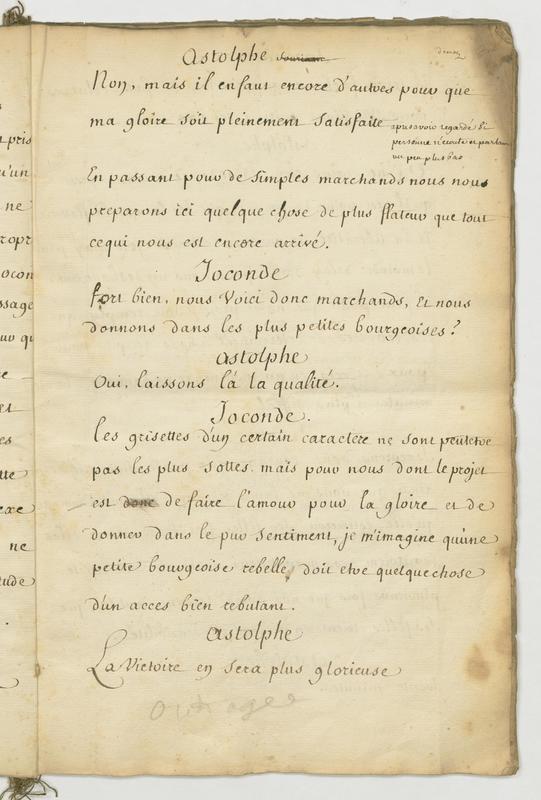 Astolphe souriant
Non, mais il en faut encore d'autres pour que
ma gloire soit pleinement satisfaite
apres avoir regardé si
personne n'ecoute et parlant
un peu plus bas
En passant pour de simples marchands nous nous
preparons ici quelque chose de plus flateur que tout
cequi nous est encore arrivé.
Joconde
fort bien, nous Voici donc marchands, Et nous
donnons dans les plus petites bourgeoises?
astolphe
Oui, laissons là la qualité.
Joconde.
les grisettes d'un certain caractere ne sont peutetre
pas les plus sottes. mais pour nous dont le projet
est donc de faire l'amour pour la gloire et de
donner dans le pur sentiment, je m'imagine qu'une
petite bourgeoise rebelle, doit etre quelque chose
d'un acces bien rebutant.
astolphe
La Victoire en sera plus glorieuse
t pris
u'un
ne
ropr
ocon
ssage
ur qu
re
et
es
tte
ne
tude